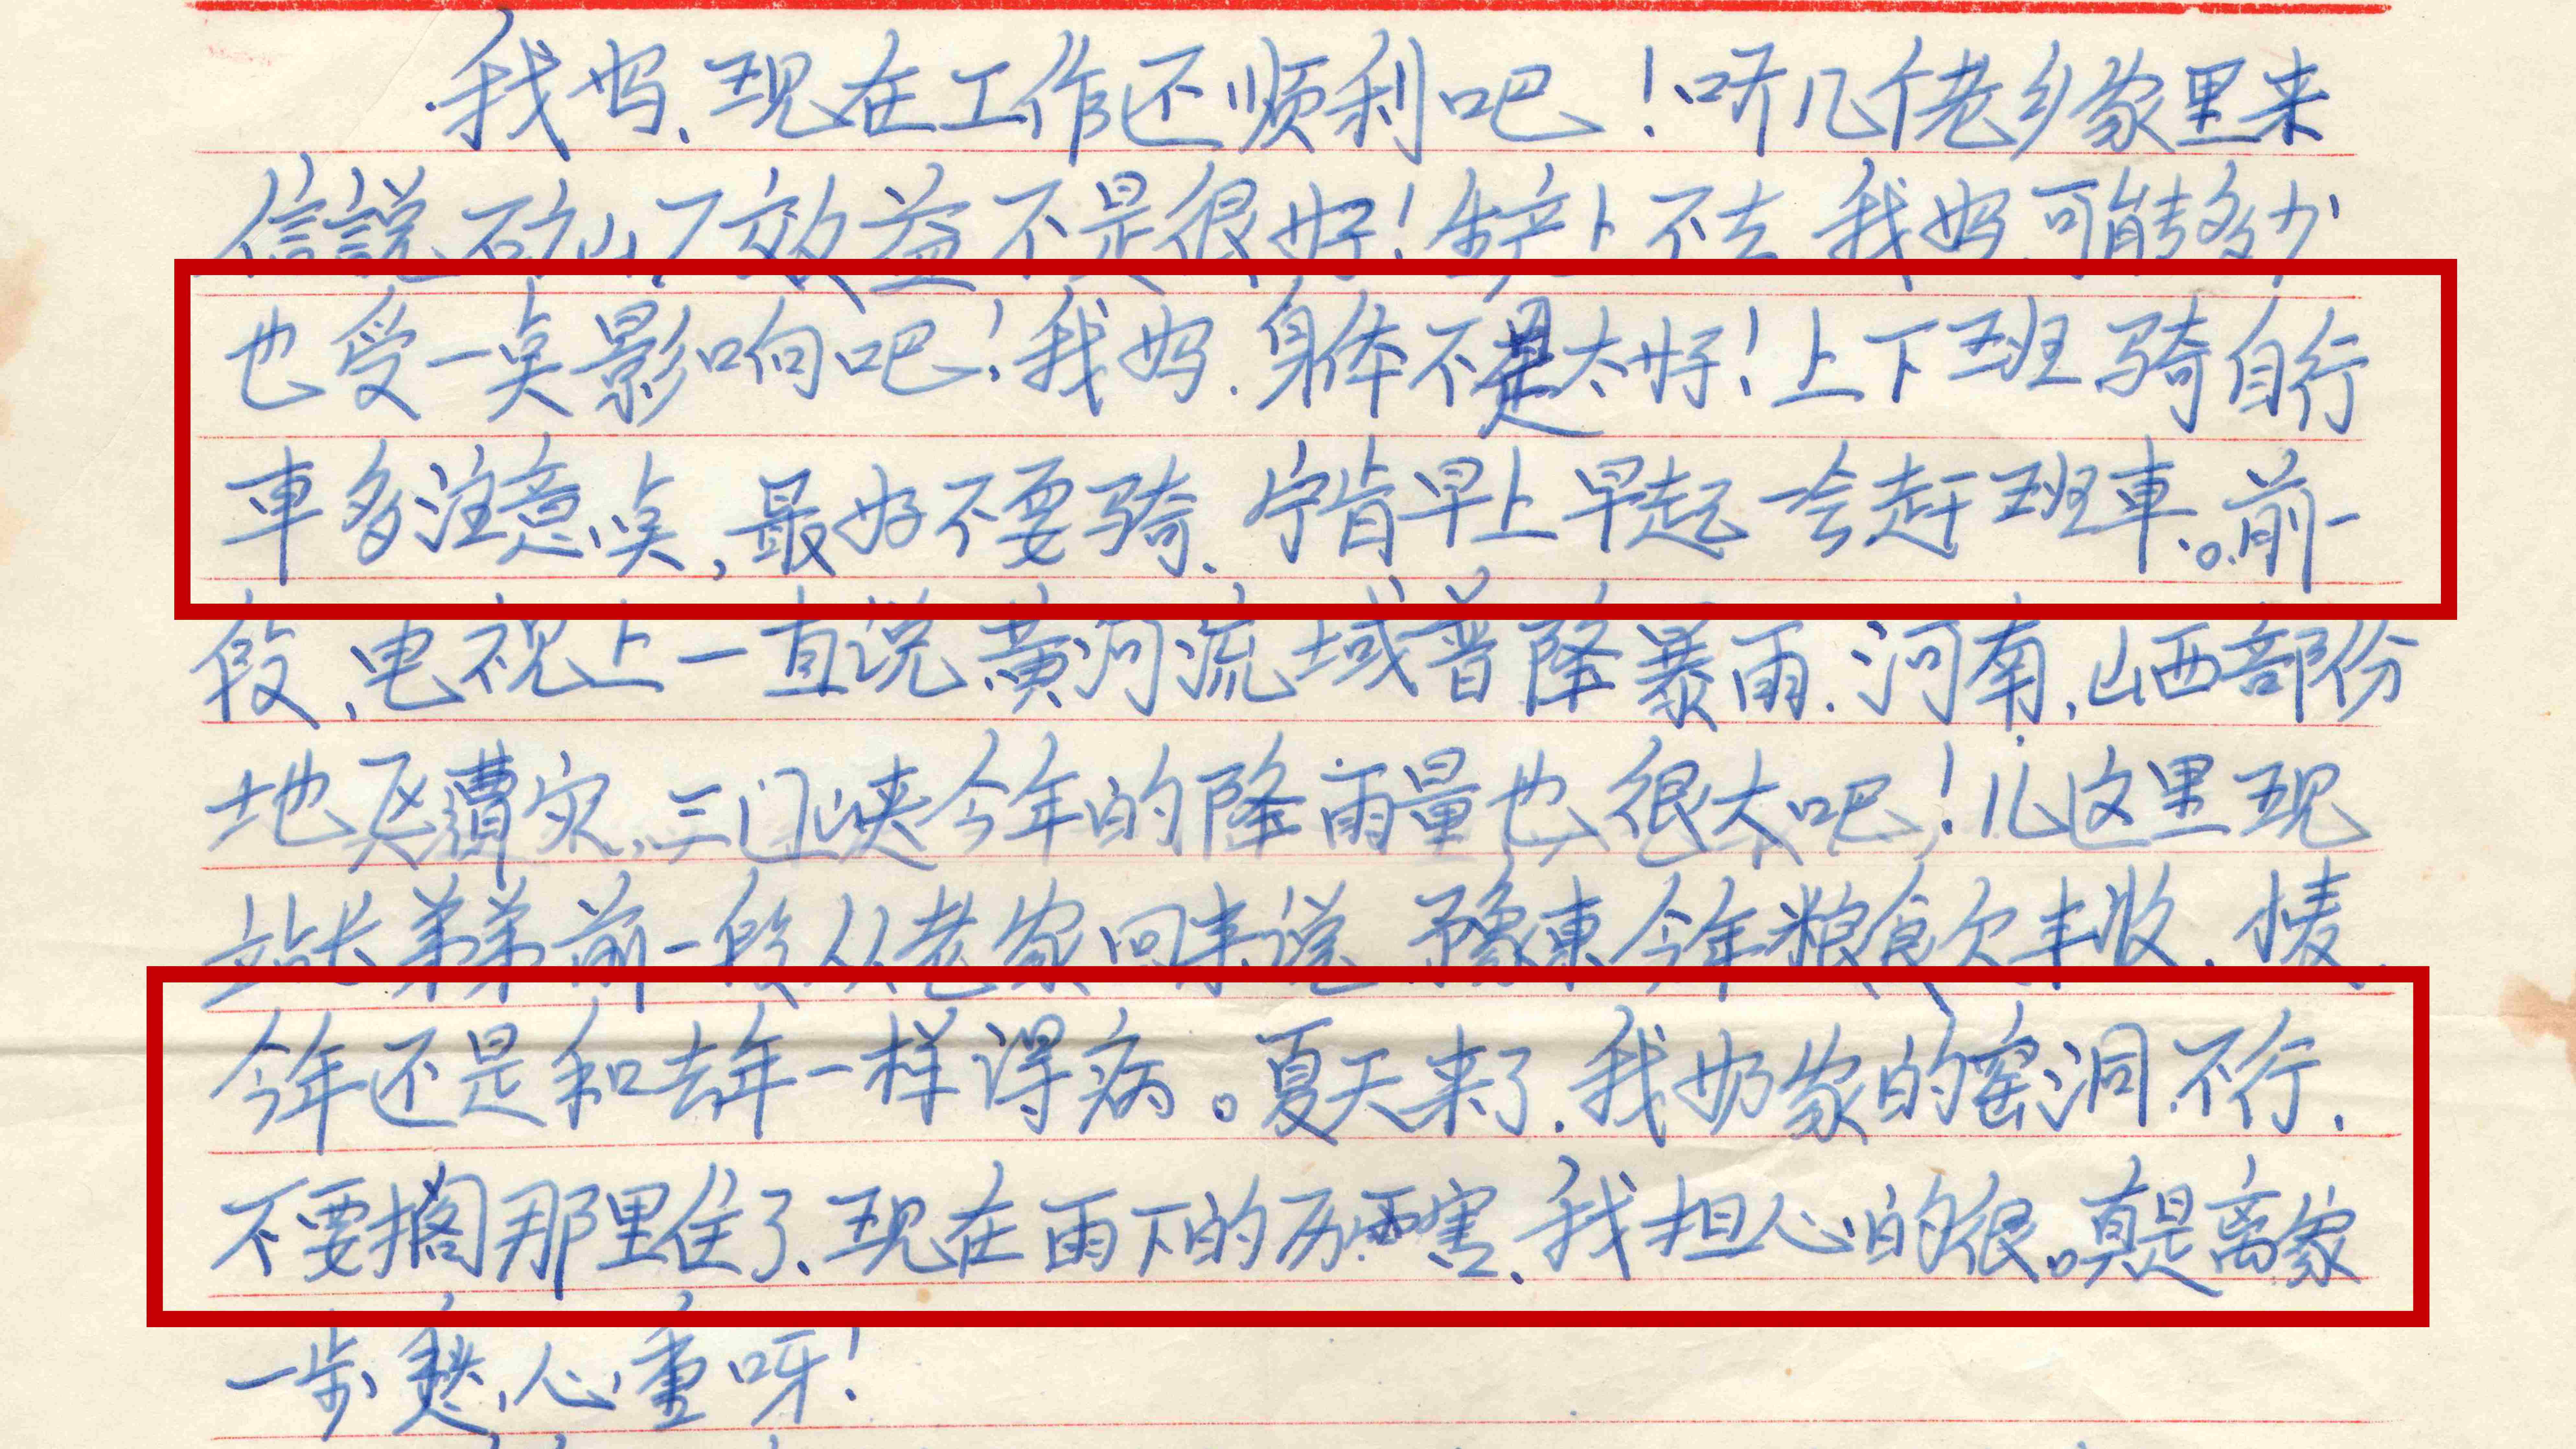 我妈、现在工作还顺利吧！听几个老乡家里来
信說石矿厂效益不是很好！生产卜不去 我妈 可能多少
也受一点影响吧！我妈.身体不是太好！上下班骑自行
車多注意点，最好不要骑.宁肯早上早起一会赶班車。前一
段、电视上一直说黄河流域普降暴雨.河南、山西部份
地区遭灾、三门峡今年的降雨量也很大吧！儿这里现
站长弟弟前一段从老家回来说 豫東今年粮食欠丰收、小麦、
今年还是和去年一样得病。夏天来了、我奶家的窑洞不行、
不要搁那里住了、现在雨下的厉害、我担心的很。真是离家
一步愁心重呀！